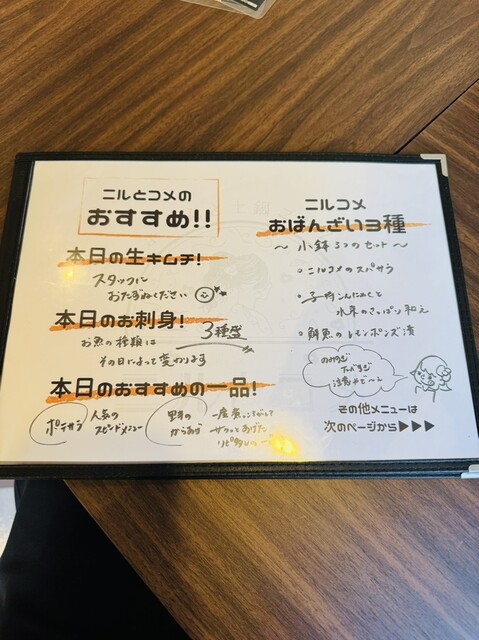 ニルとコメの
おすすめ!!
本日の生キムチ!
スタッフに
おたずねください
本日のお刺身!
3種盛
お魚の種類は
その日によって変わります
本日のおすすめの一品!
ポテサラ
人気の
スピードメニュー
からあげ
一度食べ
サクッとあげた
ニルコメ
おばんざい3種
〜小鉢3つのセット〜
・ニルコメのスパサラ
・子持こんにゃくと
水菜のさっぱり和え
・鮮魚のレモンポンズ漬
その他メニューは
次のページから▶▶▶